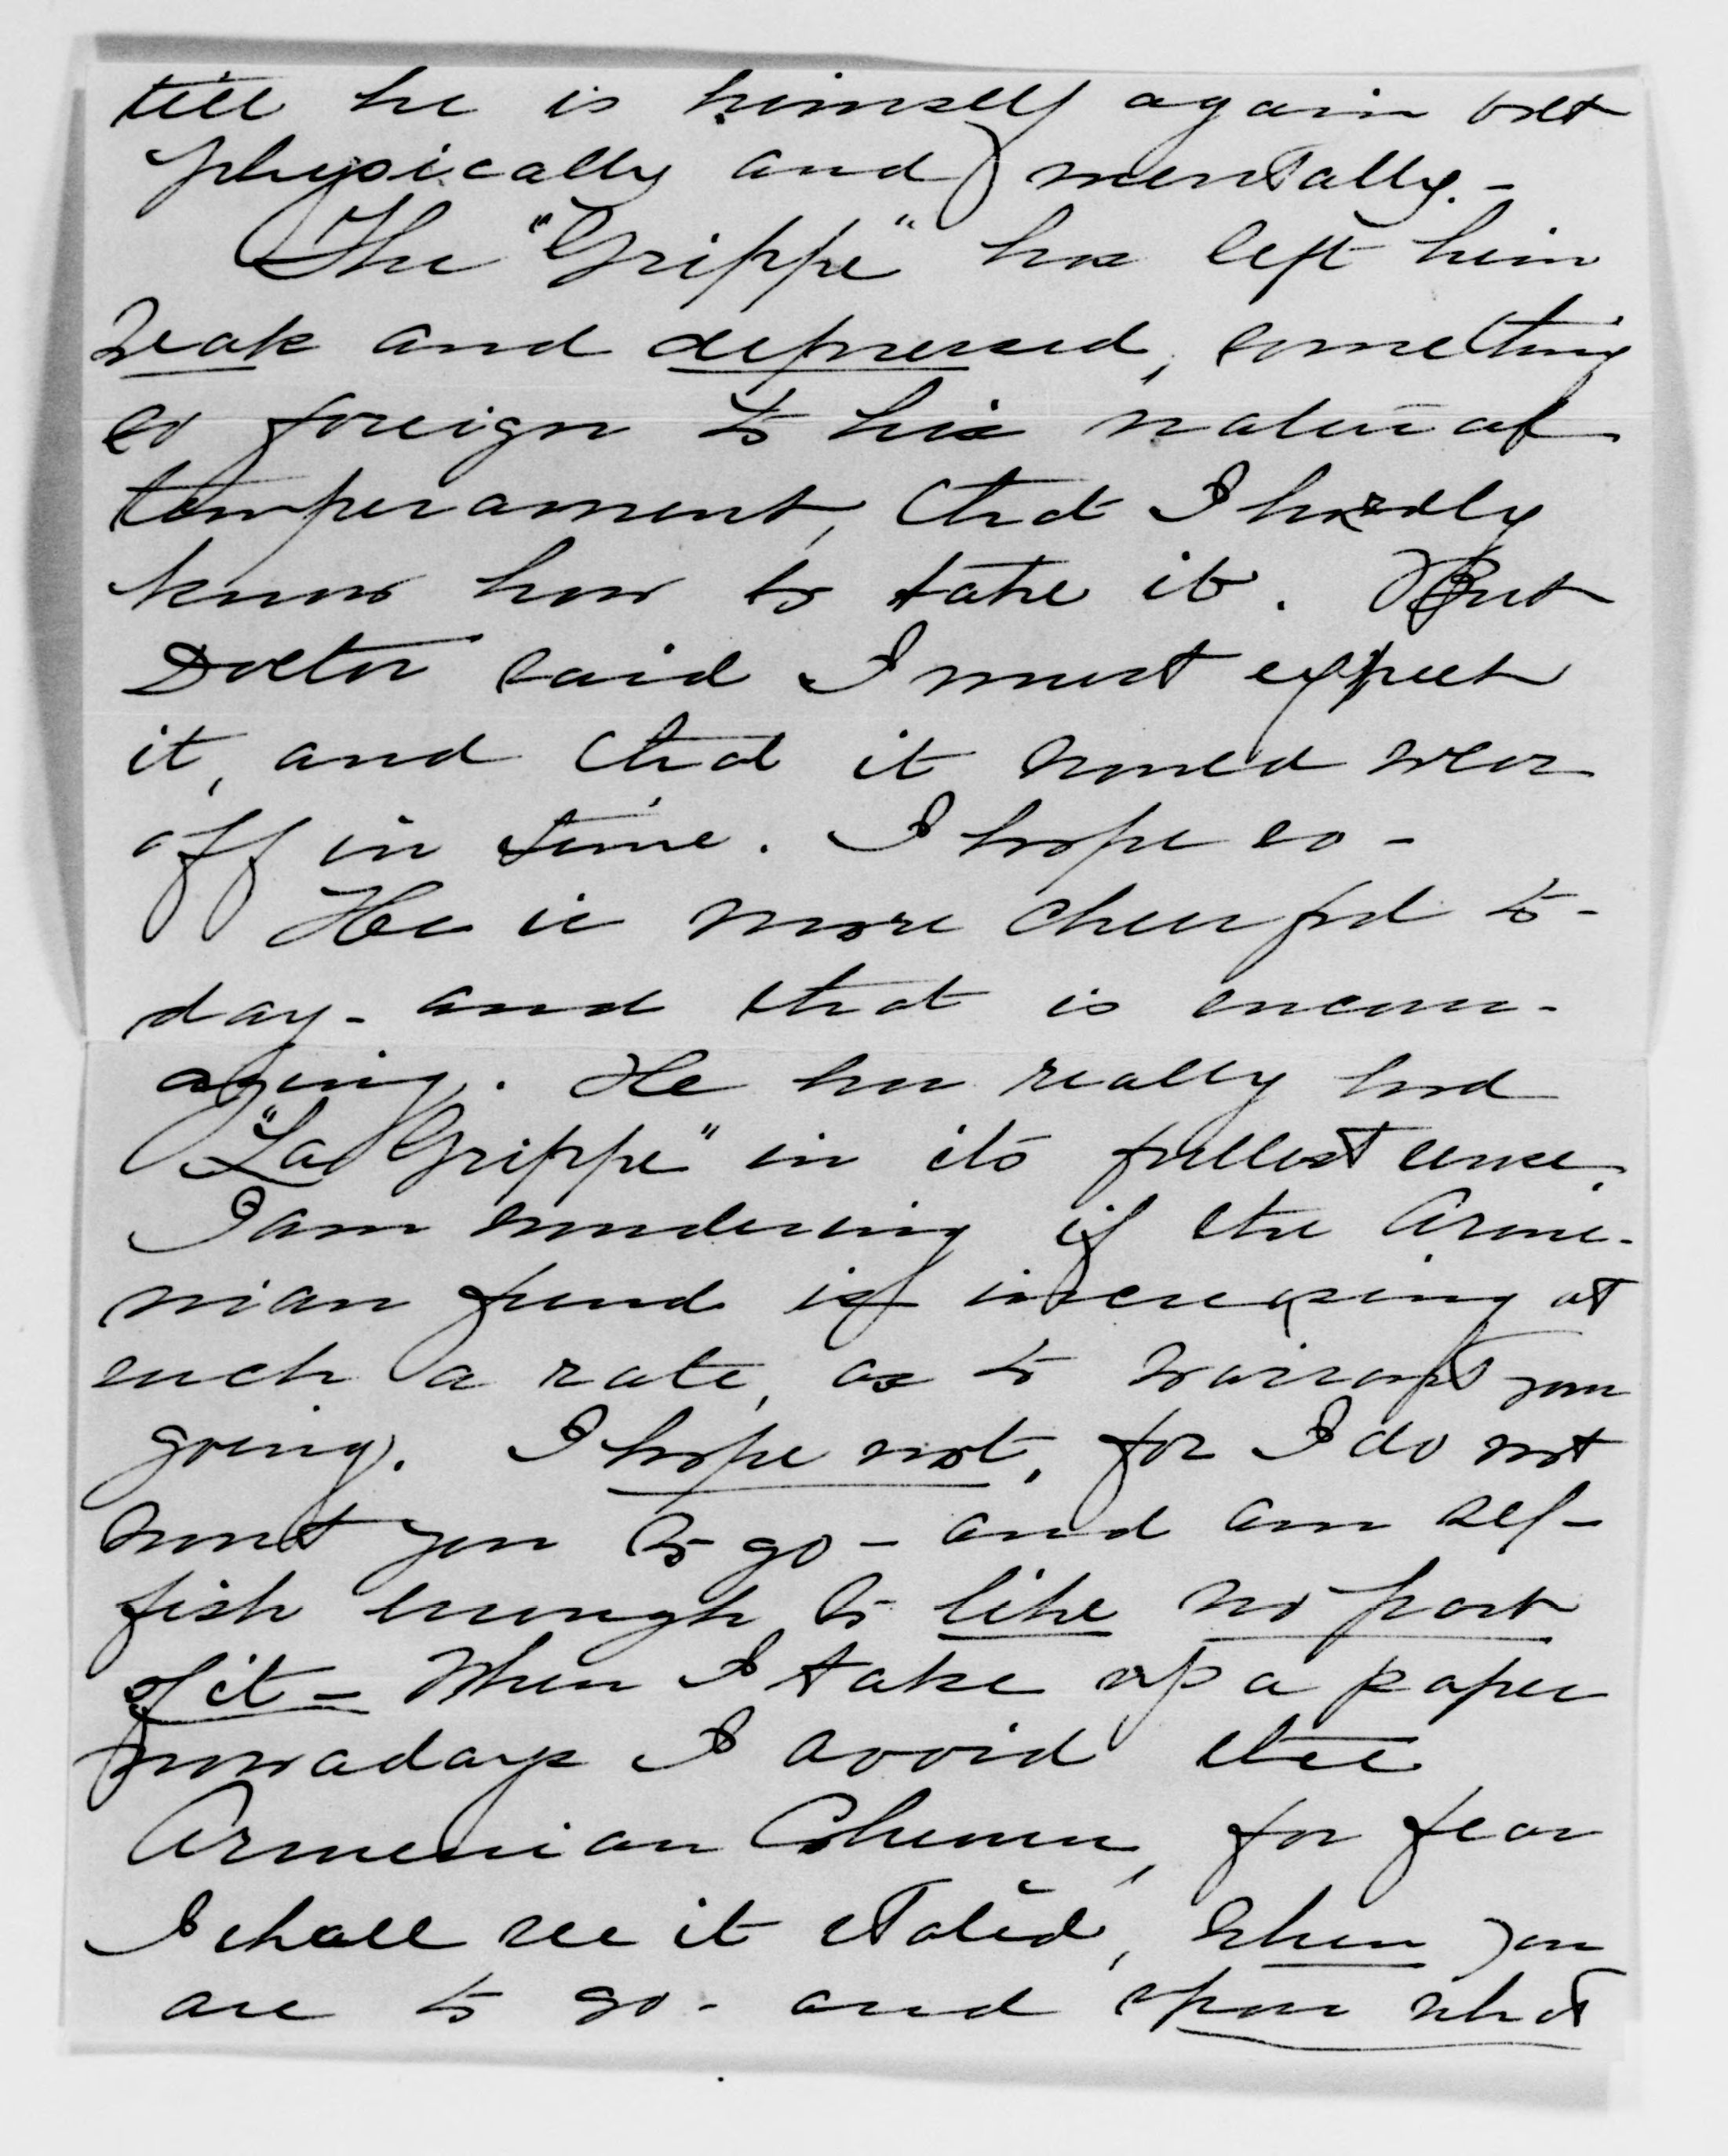 till he is himself again both
physically and mentally. -
The "Grippe" has left him
weak and depressed, something
so foreign to his natural
temperament, that I hardly
know how to take it. But
Doctor said I must expect
it, and that it would wear
off in time. I hope so -
He is more cheerful to-
day - and that is encour-
aging. He has really had
"La Grippe" in its fullest sense.
I am wondering if the Arme-
nian fund is increasing at
such a rate, as to warrant your
going. I hope not, for I do not
want you to go - and am sel-
fish enough to like no part
of it - When I take up a paper
nowadays I avoid the
Armenian Column, for fear
I shall see it stated, when you
are to go - and upon what